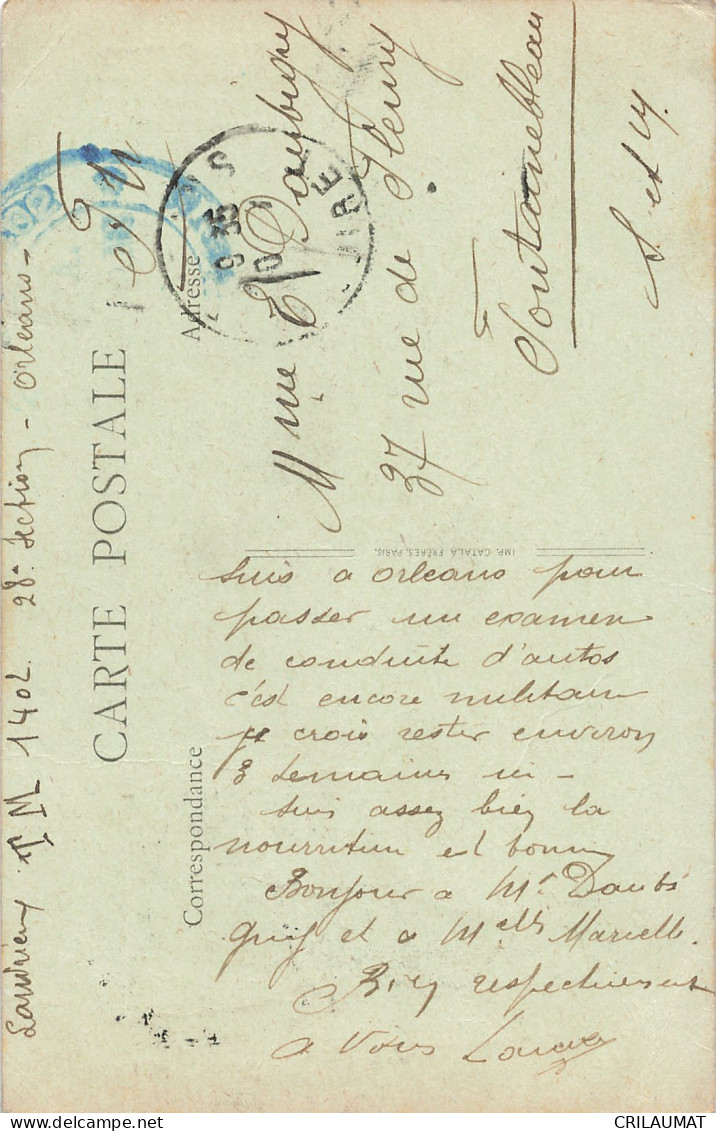 Landrieux TM 1402. 28e Section - Orléans -
CARTE POSTALE
Correspondance
Adresse
suis a orleans pour
passer un examen
de conduite d'autos
c'est encore militaire
je crois rester environ
3 semaines ici -
suis assez bien la
nourriture est bonne
Bonjour a Mr Daubi
gny et a Melle Marcelle.
Bien respectueusement
a Vous
IMP. CATALA FRÈRES, PARIS.
Mme E Daubigny
37 rue de Fleury
à Fontainebleau
S. et M.
9 35
CRILAUMAT